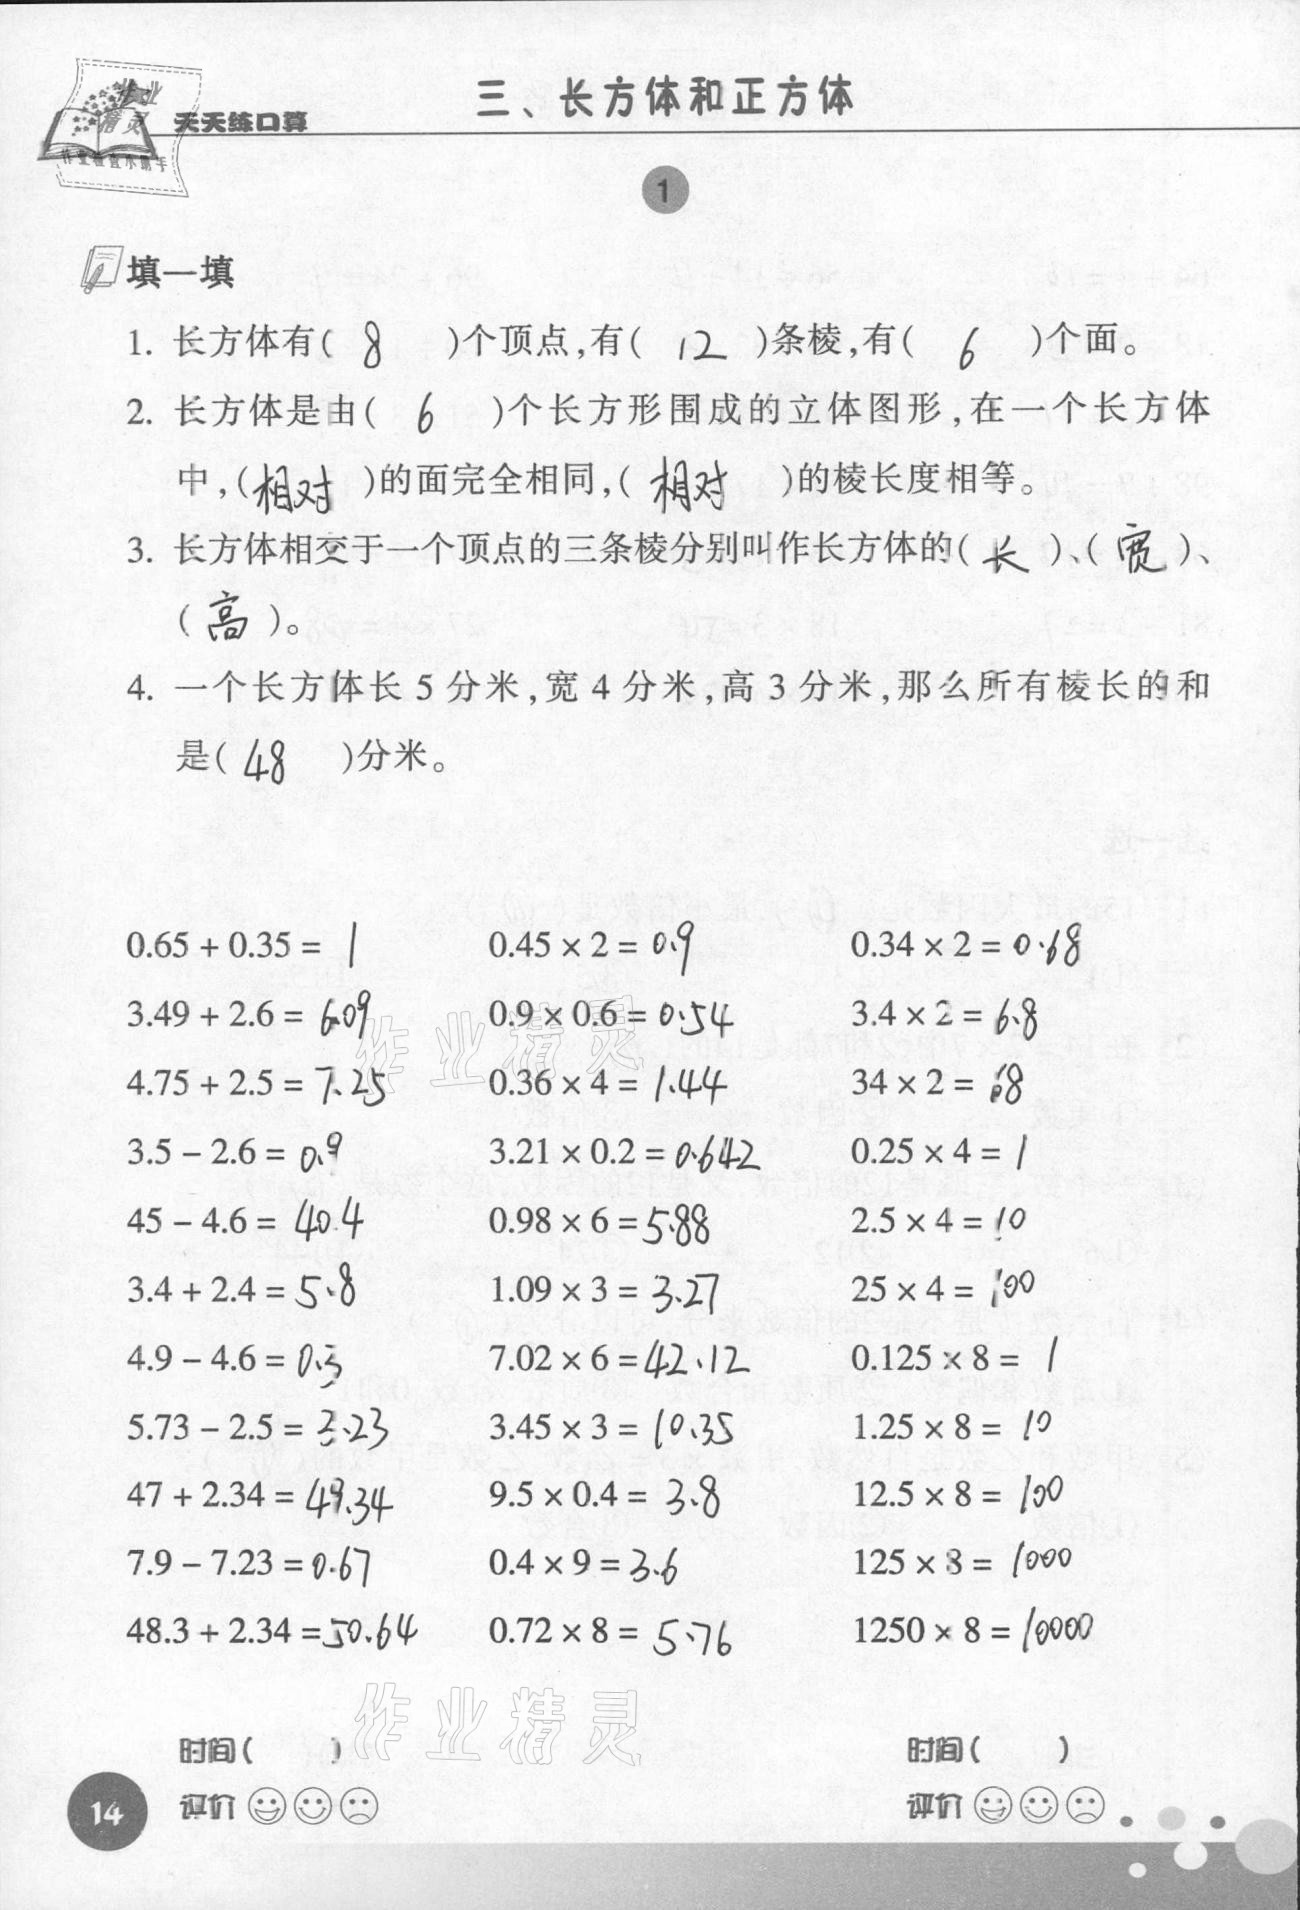 作业
精灵
作业检查小助手
天天练口算
三、长方体和正方体
1
填一填
1. 长方体有( 8 )个顶点,有( 12 )条棱,有( 6 )个面。
2. 长方体是由( 6 )个长方形围成的立体图形,在一个长方体
中,(相对)的面完全相同,( 相对 )的棱长度相等。
3. 长方体相交于一个顶点的三条棱分别叫作长方体的( 长 )、( 宽 )、
( 高 )。
4. 一个长方体长5分米,宽4分米,高3分米,那么所有棱长的和
是( 48 )分米。
0.65 + 0.35 = 1 0.45 × 2 = 0.9 0.34 × 2 = 0.68
3.49 + 2.6 = 6.09 0.9 × 0.6 = 0.54 3.4 × 2 = 6.8
4.75 + 2.5 = 7.25 0.36 × 4 = 1.44 34 × 2 = 68
3.5 − 2.6 = 0.9 3.21 × 0.2 = 0.642 0.25 × 4 = 1
45 − 4.6 = 40.4 0.98 × 6 = 5.88 2.5 × 4 = 10
3.4 + 2.4 = 5.8 1.09 × 3 = 3.27 25 × 4 = 100
4.9 − 4.6 = 0.3 7.02 × 6 = 42.12 0.125 × 8 = 1
5.73 − 2.5 = 3.23 3.45 × 3 = 10.35 1.25 × 8 = 10
47 + 2.34 = 49.34 9.5 × 0.4 = 3.8 12.5 × 8 = 100
7.9 − 7.23 = 0.67 0.4 × 9 = 3.6 125 × 8 = 1000
48.3 + 2.34 = 50.64 0.72 × 8 = 5.76 1250 × 8 = 10000
作业精灵
作业精灵
时间( ) 时间( )
评价 评价
14